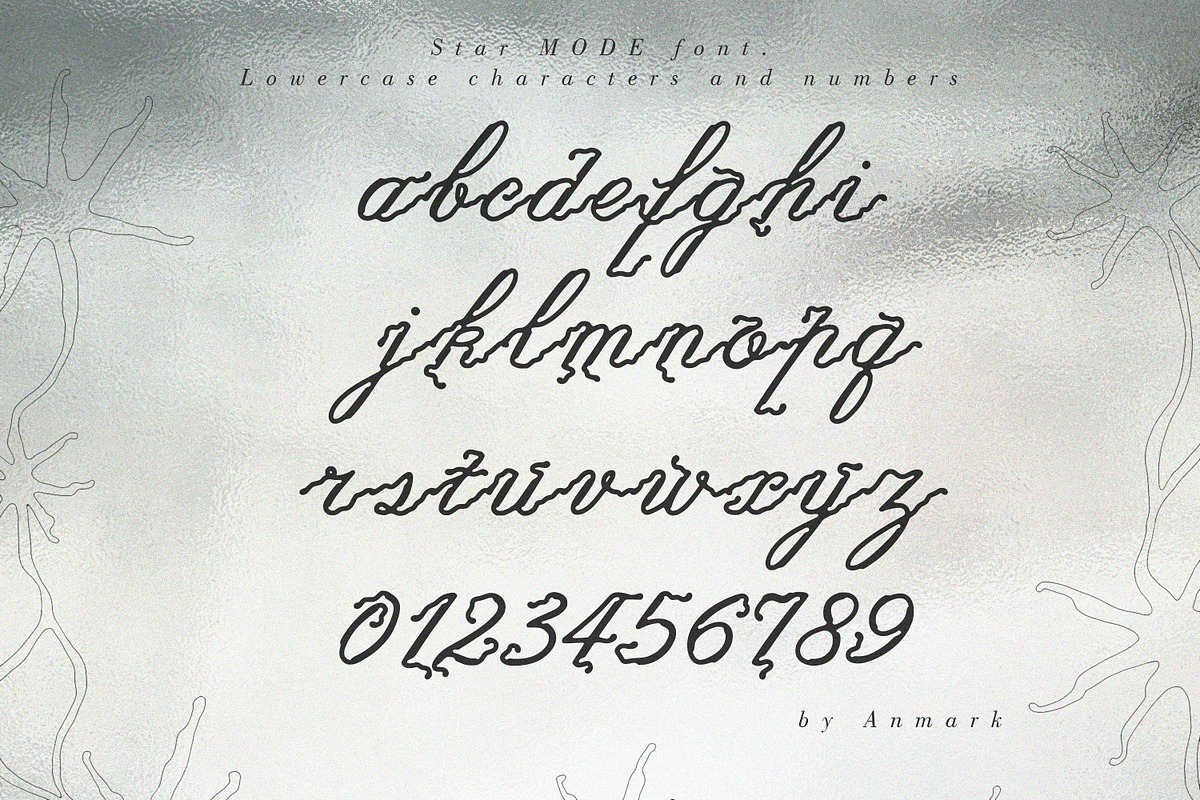 Star MODE font.
Lowercase characters and numbers
abcdefghi
jklmnopq
rstuvwxyz
0123456789
by Anmark